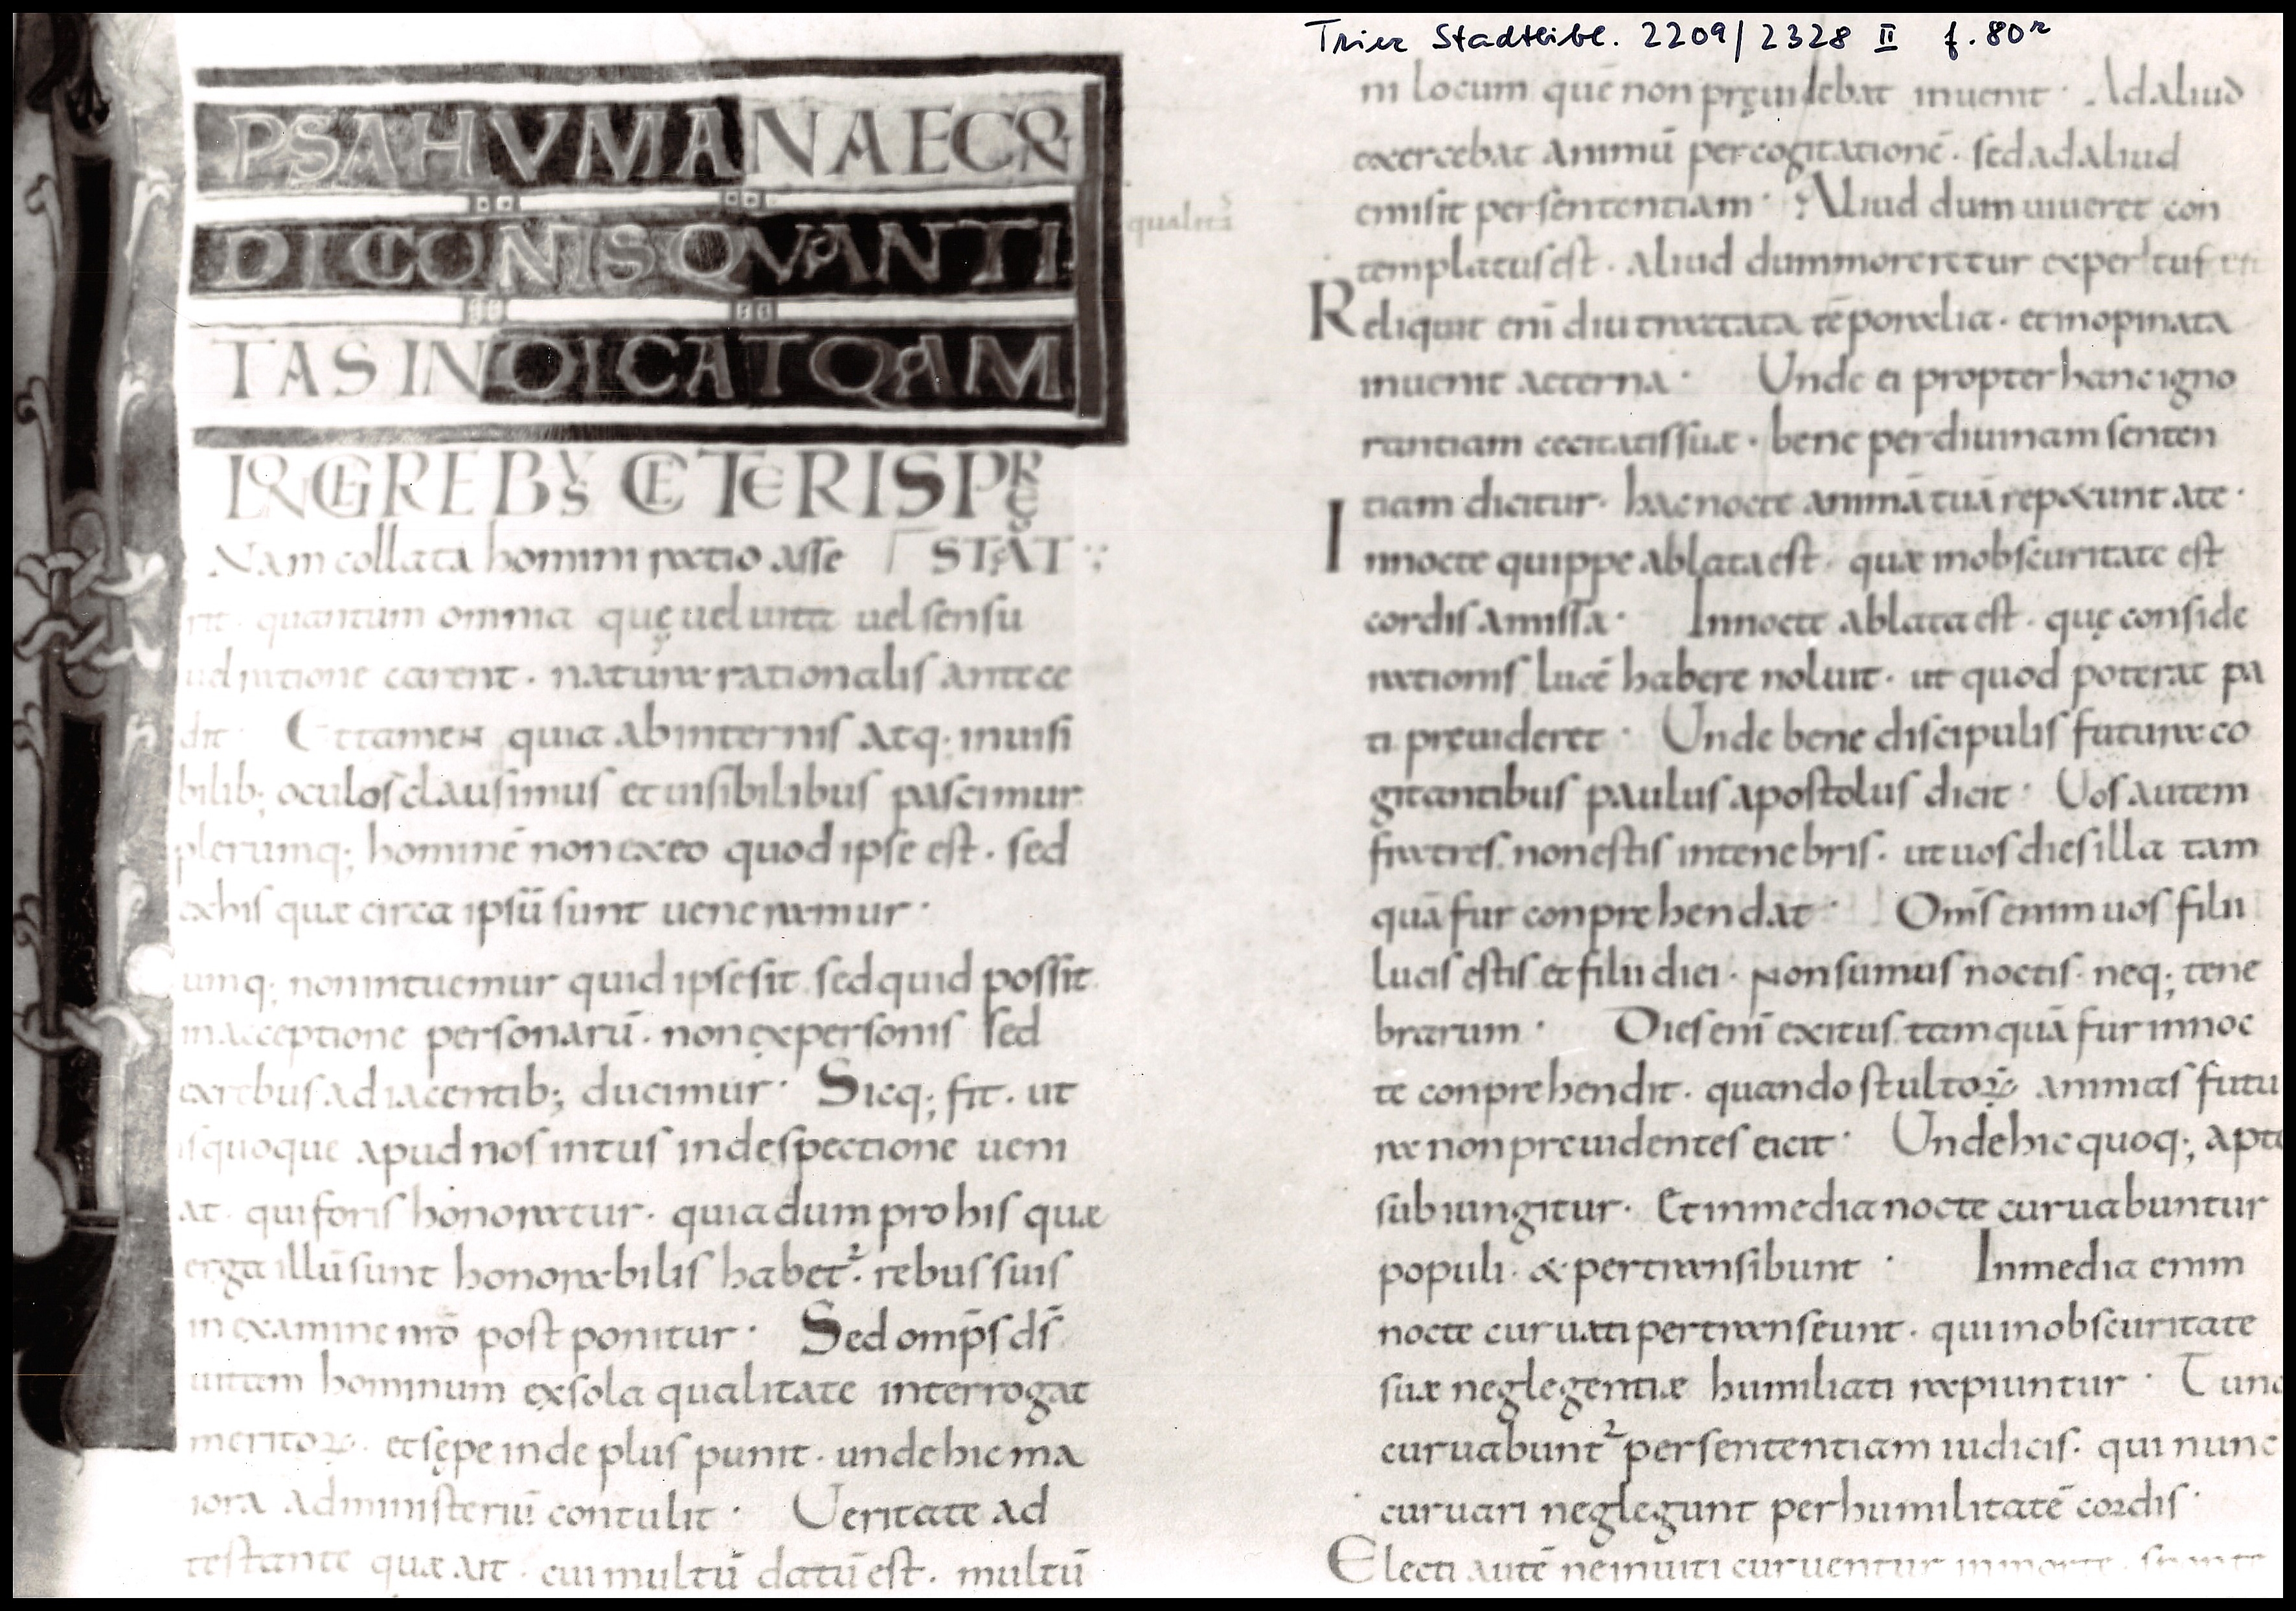 Trier Stadtbibl. 2209/2328 II f. 80r
PSA HUMANAE CO&
DICIONIS QUANTI
TAS INDICAT QUAM
LONGE REBUS CETERIS PRE
Nam collata homini ratio asse STAT
rit · quantum omnia quę uel uita uel sensu
uel ratione carent · natura rationalis antece
dit · Et tamen quia ab internis atq· inuisi
bilib; oculos clausimus et uisibilibus pascimur
plerumq; hominē non ex eo quod ipse est · sed
ex his quae circa ipsū sunt ueneramur ·
umq; non intuemur quid ipse sit sed quid possit
in acceptione personarū · non ex personis sed
ex rebus adiacentib; ducimur · Sicq; fit · ut
is quoque apud nos intus in despectione ueni
at · qui foris honoratur · quia dum pro his quae
erga illū sunt honorabilis habet᷑ · rebus suis
in examine nr̄o postponitur · Sed omp̄s ds̄
uitam hominum ex sola qualitate interrogat
meritoꝝ · et sępe inde plus punit · unde hic ma
iora ad ministeriū contulit · Ueritate ad
testante quae ait · cui multū datū est · multū
qualitas
in locum quē non pręuidebat inuenit · Ad aliud
exercebat animū per cogitationē · sed ad aliud
emisit per sententiam · Aliud dum uiueret con
templatus est · aliud dum moreretur expertus est
Reliquit enī diu tractata tēporalia · et inopinata
inuenit aeterna · Unde ei propter hanc igno
rantiam cecitatis suae · bene per diuinam senten
tiam dicitur · hac nocte animā tuā repetunt a te ·
In nocte quippe ablata est · quae in obscuritate est
cordis amissa · In nocte ablata est · quę conside
rationis lucē habere noluit · ut quod poterat pa
ti preuideret · Unde bene discipulis futura co
gitantibus paulus apostolus dicit · Uos autem
fratres non estis in tenebris · ut uos dies illa tam
quā fur conprehendat · Om̄s enim uos filii
lucis estis et filii diei · Non sumus noctis · neq; tene
brarum · Dies enī exitus tamquā fur in noc
te conprehendit · quando stultoꝝ animas futu
ra non preuidentes eicit · Unde hic quoq; apte
subiungitur · Et in media nocte curuabuntur
populi · & pertransibunt · In media enim
nocte curuati pertranseunt · qui in obscuritate
suae neglegentiae humiliati rapiuntur · Tunc
curuabunt᷑ per sententiam iudicis · qui nunc
curuari neglegunt per humilitatē cordis ·
Electi autē ne inuiti curuentur in morte ·